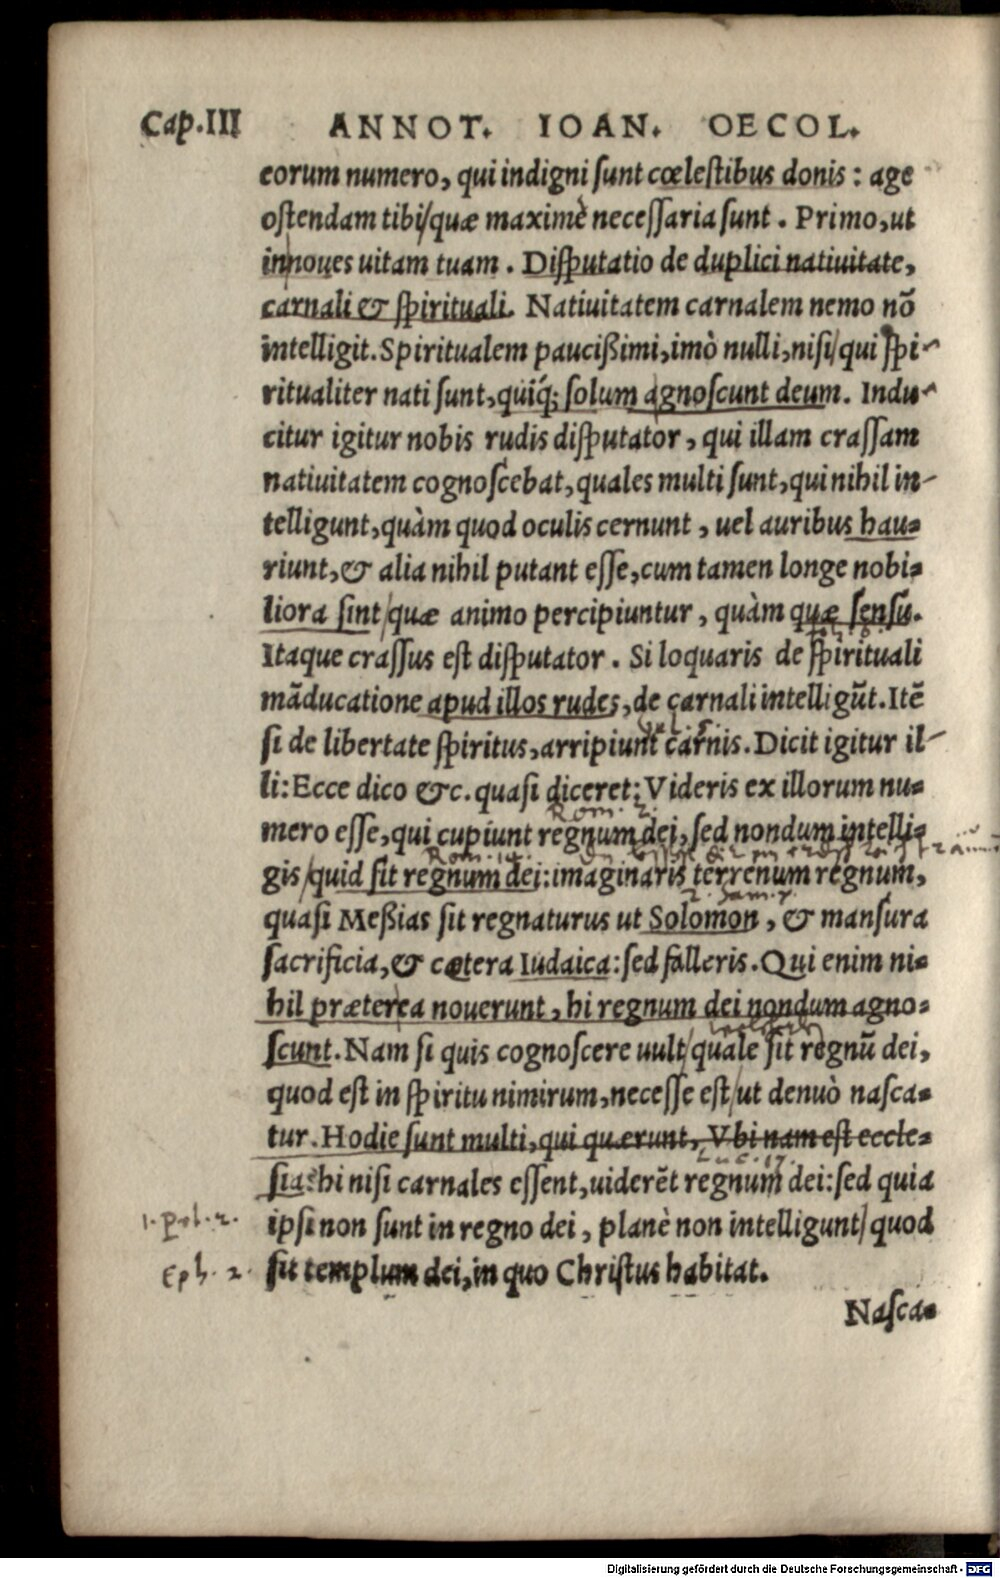 Cap.III ANNOT. IOAN. OECOL.
eorum numero, qui indigni ſunt cœleſtibus donis: age
oſtendam tibi/quæ maximè neceſſaria ſunt. Primo, ut
innoues uitam tuam. Diſputatio de duplici natiuitate,
carnali & ſpirituali. Natiuitatem carnalem nemo nō
intelligit. Spiritualem pauciſſimi, imò nulli, niſi/qui ſpi-
ritualiter nati ſunt, quiq́; ſolum agnoſcunt deum. Indu-
citur igitur nobis rudis diſputator, qui illam craſſam
natiuitatem cognoſcebat, quales multi ſunt, qui nihil in-
telligunt, quàm quod oculis cernunt, uel auribus hau-
riunt, & alia nihil putant eſſe, cum tamen longe nobi-
liora ſint/quæ animo percipiuntur, quàm quæ ſenſu.
Itaque craſſus eſt diſputator. Si loquaris de ſpirituali
mãducatione apud illos rudes, de carnali intelligũt. Itē
Gal. 5.
ſi de libertate ſpiritus, arripiunt carnis. Dicit igitur il-
li: Ecce dico &c. quaſi diceret: Videris ex illorum nu-
Rom. 2.
mero eſſe, qui cupiunt regnum dei, ſed nondum intelli-
Rom. 14.
gis/quid ſit regnum dei: imaginaris terrenum regnum,
2. Sam. 7.
quaſi Meſſias ſit regnaturus ut Solomon, & manſura
ſacrificia, & cætera Iudaica: ſed falleris. Qui enim ni-
hil præterea nouerunt, hi regnum dei nondum agno-
ſcunt. Nam ſi quis cognoſcere uult/quale ſit regnũ dei,
quod eſt in ſpiritu nimirum, neceſſe eſt/ut denuò naſca-
tur. Hodie ſunt multi, qui quærunt, Vbi nam eſt eccle-
Luc. 17.
ſia: hi niſi carnales eſſent, uiderēt regnum dei: ſed quia
1. Pet. 2.
ipſi non ſunt in regno dei, planè non intelligunt/quod
Eph. 2.
ſit templum dei, in quo Chriſtus habitat.
Naſca-
Digitalisierung gefördert durch die Deutsche Forschungsgemeinschaft - DFG